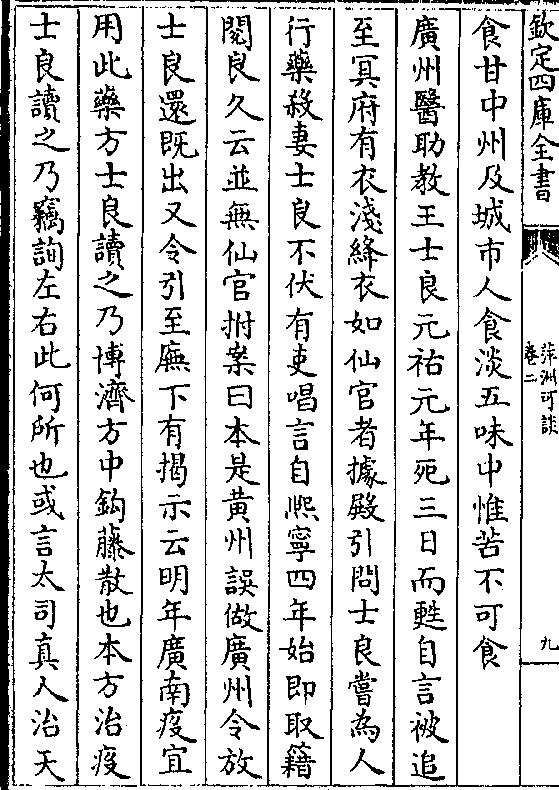 欽定四庫全書
萍洲可談
卷二
九
食甘中州及城市人食淡五味中惟苦不可食
廣州醫助教王士良元祐元年死三日而甦自言被追
至冥府有衣淺絳衣如仙官者據殿引問士良嘗為人
行藥殺妻士良不伏有吏唱言自熈寧四年始即取籍
閱良久云並無仙官拊案曰本是黄州誤做廣州令放
士良還既出又令引至廡下有揭示云明年廣南疫宜
用此藥方士良讀之乃博濟方中鈎藤散也本方治疫
士良讀之乃竊詢左右此何所也或言太司真人治天